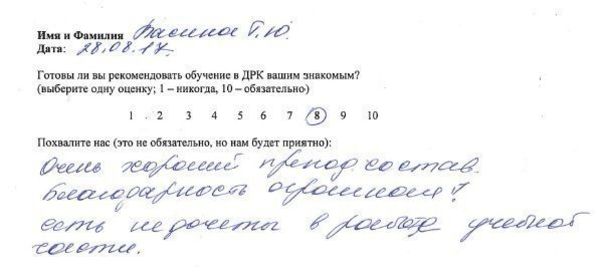 Имя и Фамилия Васина Т.Ю.
Дата: 28.08.17.
Готовы ли вы рекомендовать обучение в ДРК вашим знакомым?
(выберите одну оценку; 1 – никогда, 10 – обязательно)
1 2 3 4 5 6 7 8 9 10
Похвалите нас (это не обязательно, но нам будет приятно):
Очень хороший препод. состав.
Благодарность огромная!
есть недочеты в работе учебной
части.